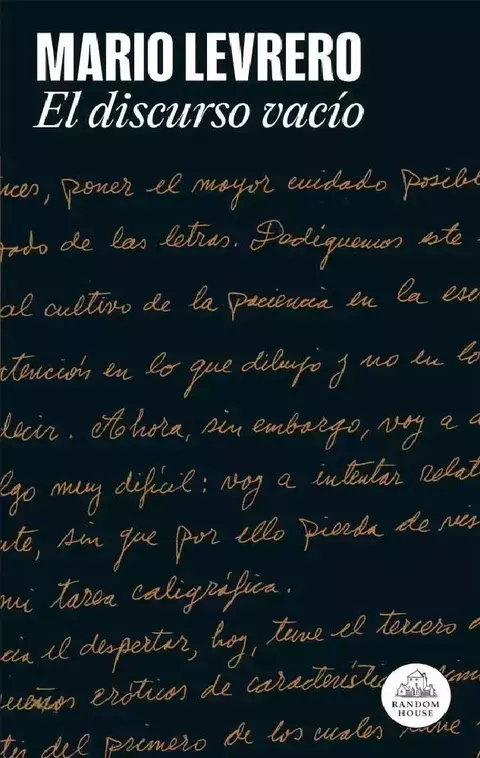 MARIO LEVRERO
El discurso vacío
nces, poner el mayor cuidado posibl
gado de las letras. Dediquemos este
al cultivo de la paciencia en la esc
atención en lo que dibujo y no en lo
decir. Ahora, sin embargo, voy a a
lgo muy difícil: voy a intentar relat
nte, sin que por ello pierda de vis
mi tarea caligráfica.
cia el despertar, hoy, tuve el tercero d
sueños eróticos de característic
tes del primero de los cuales tuve
RANDOM
HOUSE